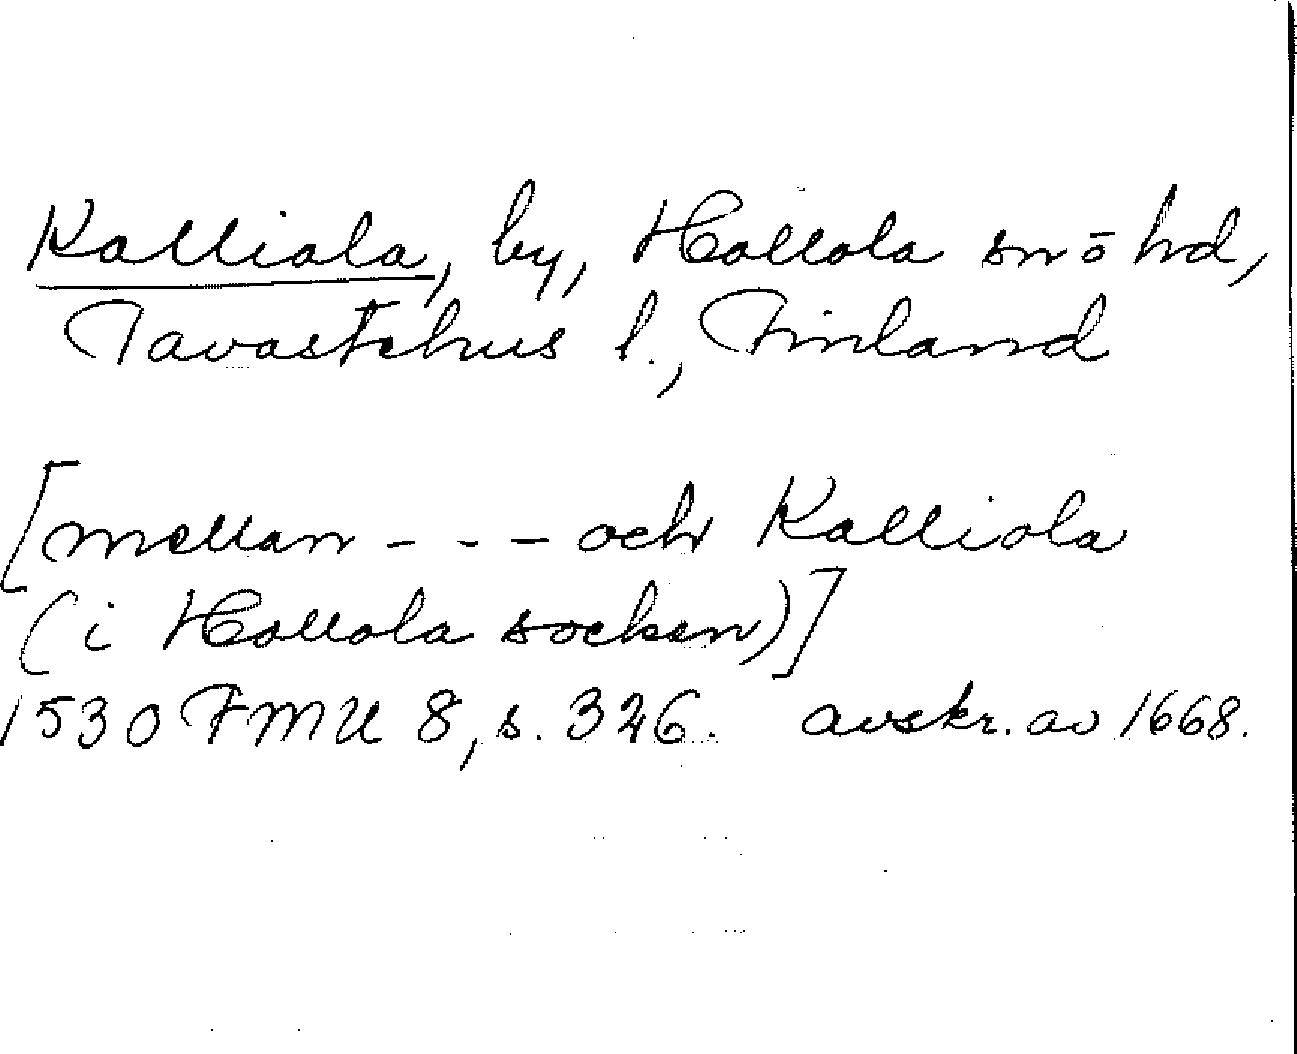 Kalliala, by, Hollola sn o hd,
Tavastehus l., Finland
[mellan --- och Kalliola
(i Hollola socken)]
1530 FMU 8, s. 326. avskr. av 1668.